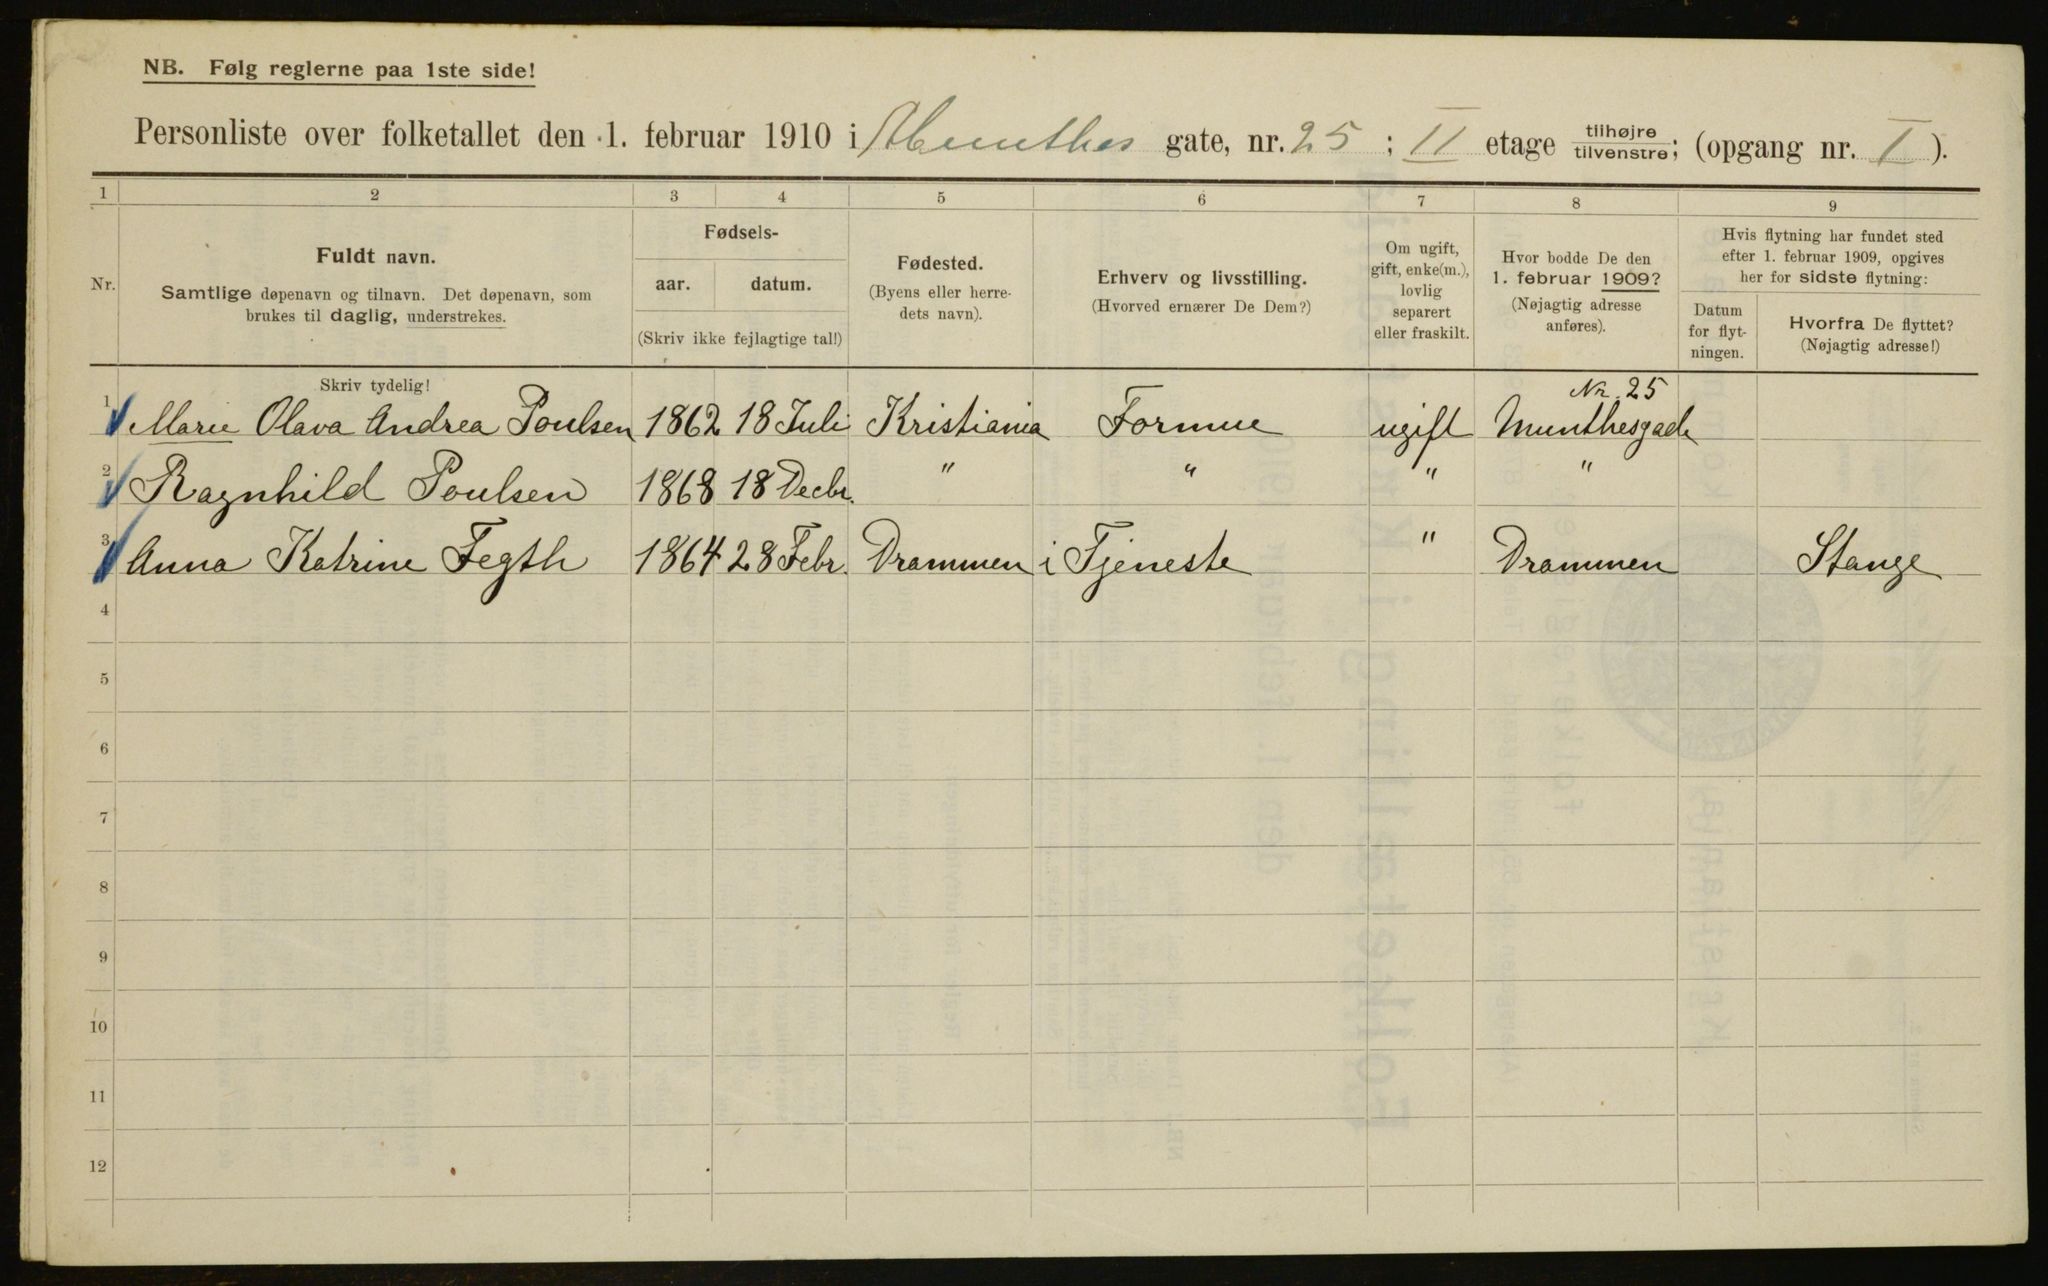 NB. Følg reglerne paa 1ste side!
Personliste over folketallet den 1. februar 1910 i A Munthes gate, nr. 25 ; II etage tilhøjre tilvenstre; (opgang nr. I ).
1 2 3 4 5 6 7 8 9
Nr.
Fuldt navn.
Samtlige døpenavn og tilnavn. Det døpenavn, som
brukes til daglig, understrekes.
Skriv tydelig!
Fødsels-
aar. datum.
(Skriv ikke fejlagtige tal!)
Fødested.
(Byens eller herre-
dets navn).
Erhverv og livsstilling.
(Hvorved ernærer De Dem?)
Om ugift,
gift, enke(m.),
lovlig
separert
eller fraskilt.
Hvor bodde De den
1. februar 1909?
(Nøjagtig adresse
anføres).
Hvis flytning har fundet sted
efter 1. februar 1909, opgives
her for sidste flytning:
Datum
for flyt-
ningen.
Hvorfra De flyttet?
(Nøjagtig adresse!)
Nr. 25
1 Marie Olava Andrea Poulsen 1862 18 Juli Kristiania Formue ugift Munthesgade
2 Ragnhild Poulsen 1868 18 Decbr. " " " "
3 Anna Katrine Fegth 1864 28 Febr. Drammen i Tjeneste " Drammen Stange
4
5
6
7
8
9
10
11
12